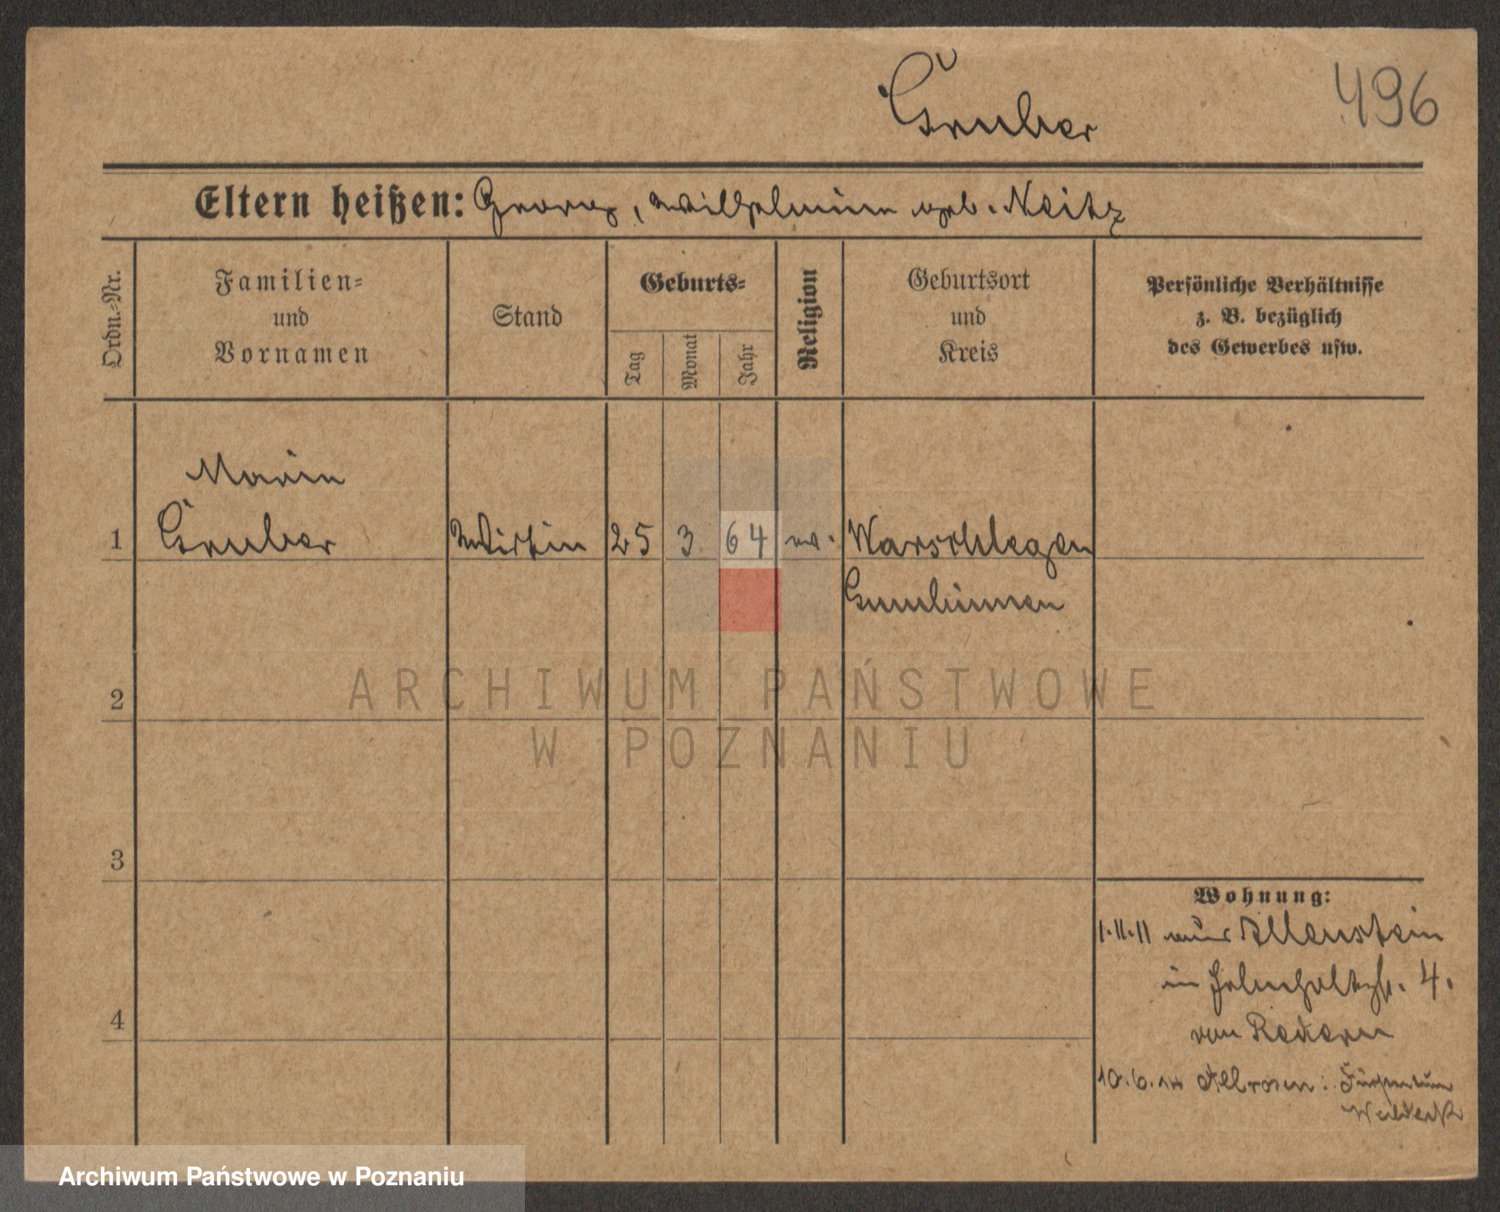 Gruber
496
Eltern heißen: Georg, Wilhelmine geb. Neitz
Ordn.-Nr.
Familien-
und
Vornamen
Stand
Geburts-
Tag
Monat
Jahr
Religion
Geburtsort
und
Kreis
Persönliche Verhältnisse
z. B. bezüglich
des Gewerbes usw.
Maria
1 Gruber Wirtin 25 3 64 Warschlegen
Gumbinnen
2
ARCHIWUM PAŃSTWOWE
W POZNANIU
3
Wohnung:
1.11.11 aus Allenstein
in Helmholtzstr. 4.
von Redern
4
10.6.14 Albrosen: Fürstentum
Waldeck
Archiwum Państwowe w Poznaniu